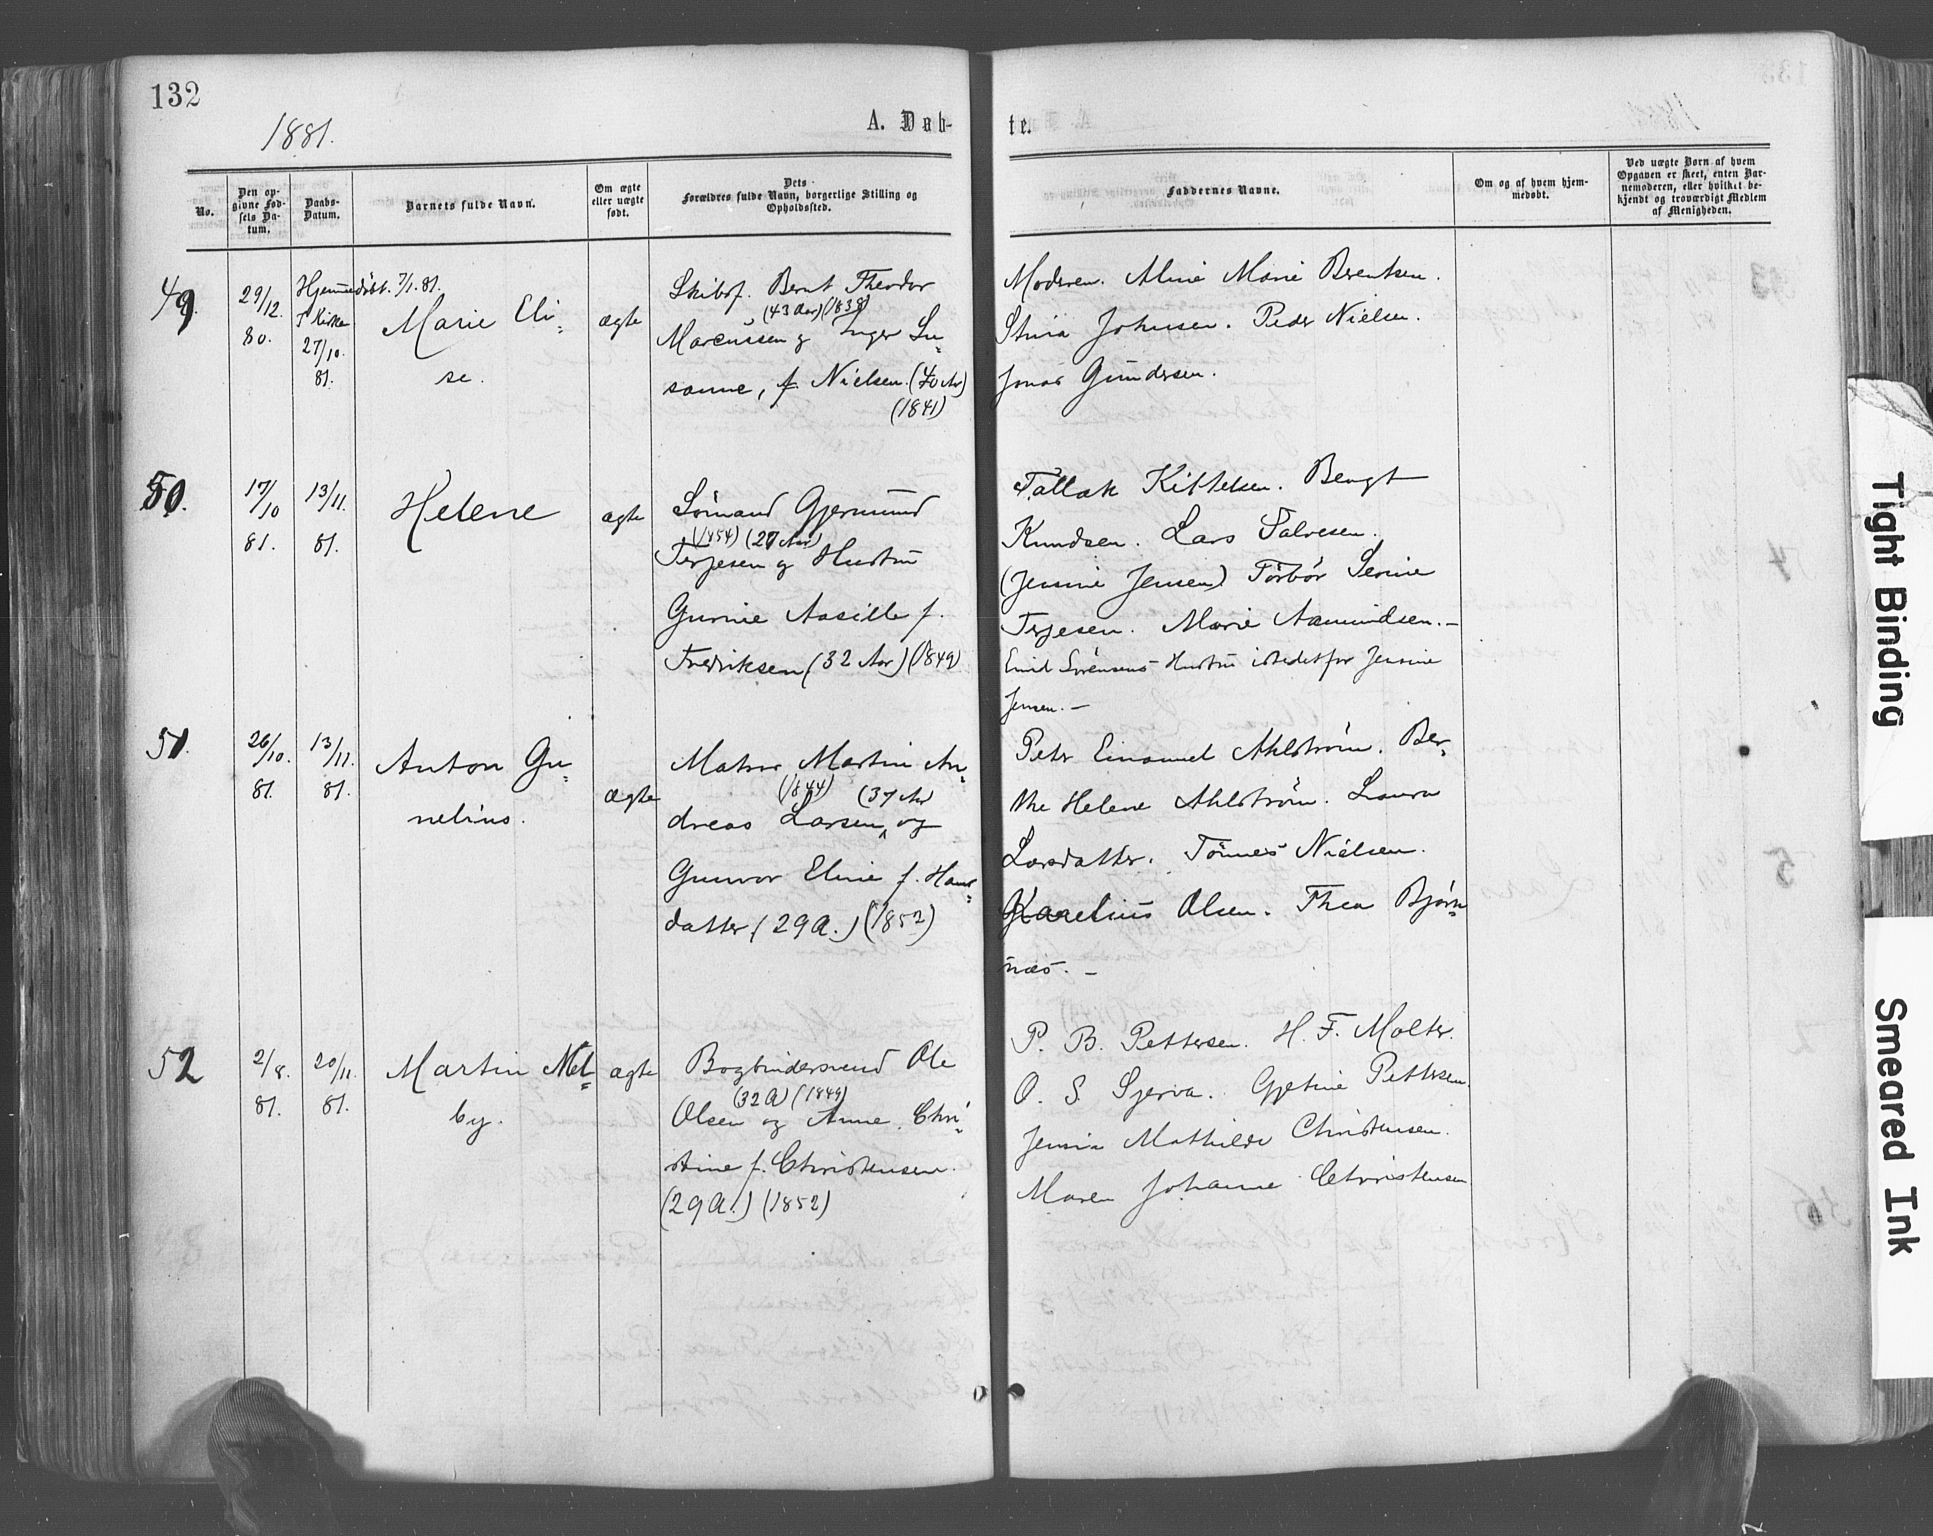 132
1881.
A. Døb-
te.
No.
Den op-
givne Fød-
sels Da-
tum.
Daabs-
Datum.
Barnets fulde Navn.
Om ægte
eller uægte
født.
Dets
Forældres fulde Navn, borgerlige Stilling og
Opholdssted.
Faddernes Navne.
Om og af hvem hjem-
medøbt.
Ved uægte Børn af hvem
Opgaven er skeet, enten Bar-
nemoderen, eller hvilket be-
kjendt og troværdigt Medlem
af Menigheden.
49.
29/12.
80.
Hjemmedøbt. 7/1. 81.
I Kirke
27/10.
81.
Marie Eli-
se.
ægte
Skibsf. Bernt Theodor
(43 Aar) (1838)
Marcussen og Inger Su-
sanne, f. Nielsen. (40 Ar)
(1841)
Moderen. Aline Marie Berentsen.
Stina Johnsen. Peder Nielsen.
Jonas Gundersen.
50.
17/10
81.
13/11.
81.
Helene
ægte
Sømand Gjermund
(1854) (27 Aar)
Terjesen og Hustru
Gurine Aasille f.
Fredriksen (32 Aar) (1849)
Tallak Kittelsen. Bengt
Knudsen. Lars Talvesen.
(Jensine Jensen) Torbør Serine
Terjesen. Marie Aamundsen.-
Emil Sørensens Hustru istedetfor Jensine
Jensen.-
51.
26/10.
81.
13/11.
81.
Anton Gu-
nelius.
ægte
Matros Martin An-
(1844) (37 Ar)
dreas Larsen, og
Gunvor Eline f. Hans-
datter, (29 A.) (1852)
Peter Emanuel Ahlstrøm. Ber-
the Helene Ahlstrøm. Laura
Larsdatter. Tønnes Nielsen.
Karelius Olsen. Thea Bjørn-
næs.-
52
2/8.
81.
20/11.
81.
Martin Nel-
by.
ægte
Bogbindersvend Ole
(32 A) (1849)
Olsen og Anne Chri-
stine f. Christensen.
(29 A.) (1852)
P. B. Pettersen. H. F. Molter.
O. S. Sjerva. Gjetine Pettersen.
Jensine Mathilde Christensen.
Maren Johanne Christensen
Tight Binding
Smeared Ink